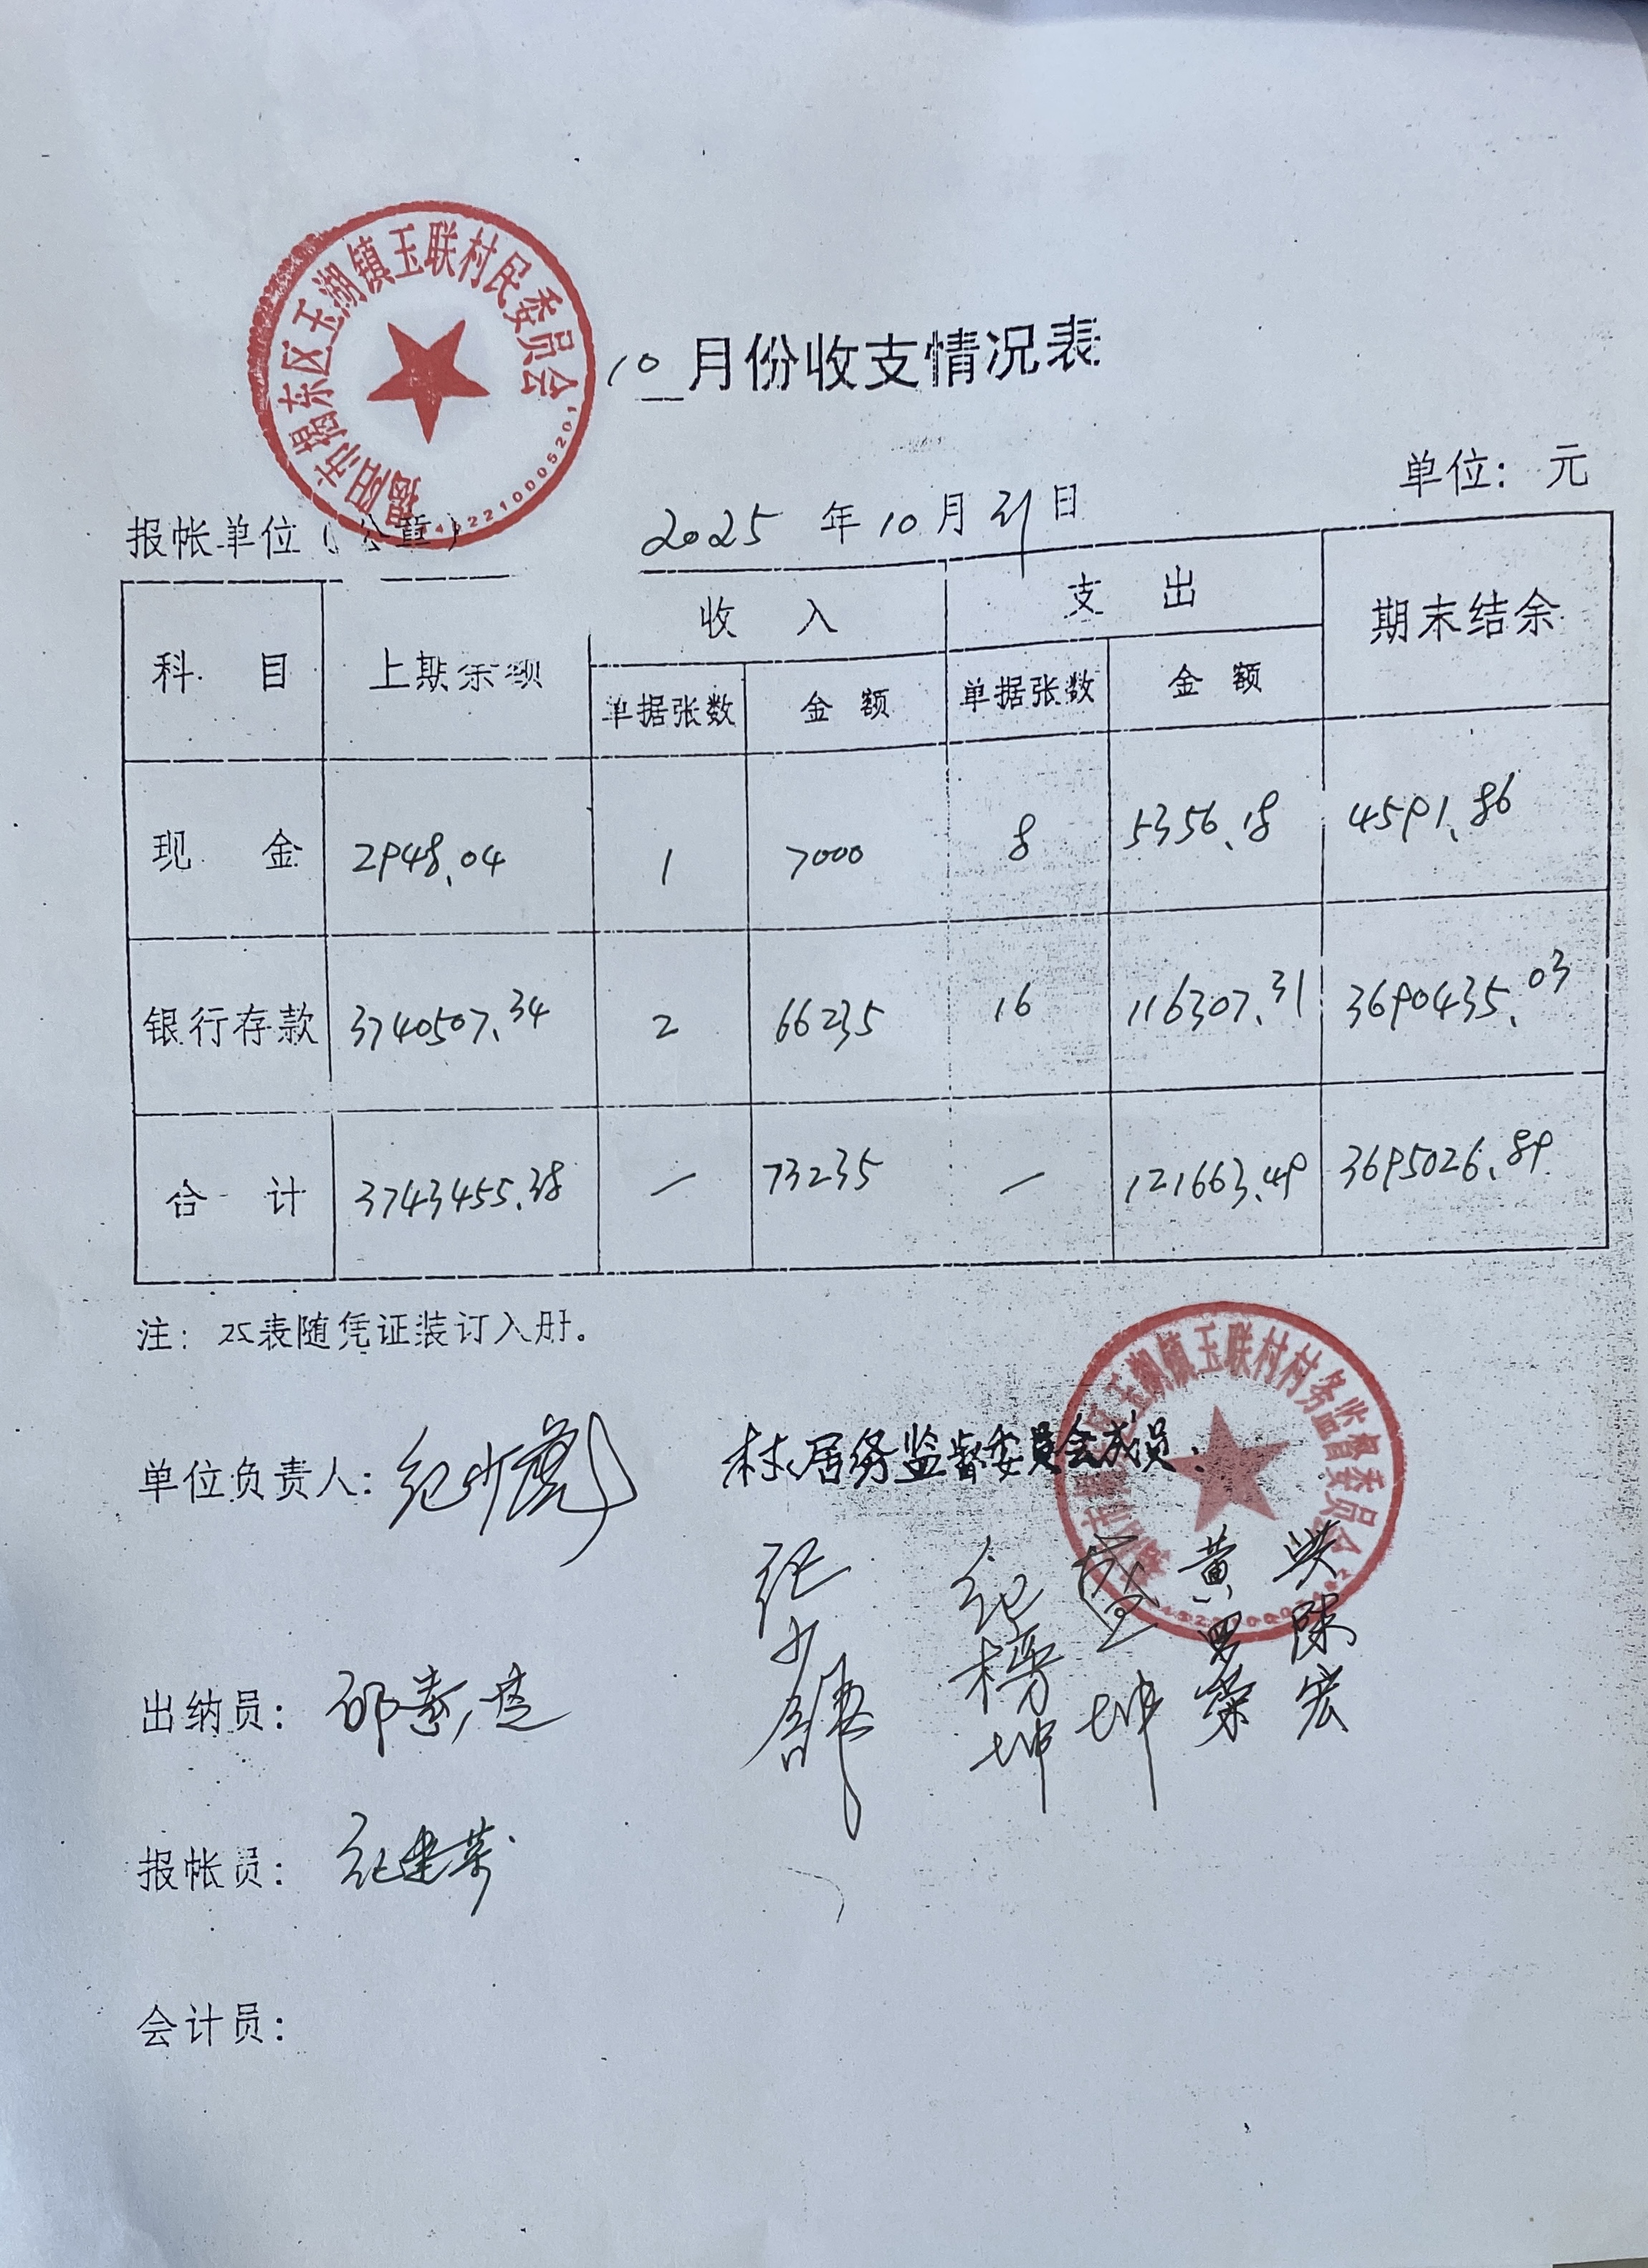 揭阳市揭东区玉湖镇玉联村民委员会
10月份收支情况表
单位：元
报帐单位（公章） 2025年10月31日
科目 上期余额 收入 支出 期末结余
单据张数 金额 单据张数 金额
现金 2948.04 1 7000 8 5356.18 4591.86
银行存款 3740507.34 2 66235 16 116307.31 3690435.03
合计 3743455.38 — 73235 — 121663.49 3695026.89
注：本表随凭证装订入册。
玉湖镇玉联村村务监督委员会
单位负责人：纪少 村、居务监督委员会成员：
纪少 纪榜坤 盛坤 黄 荣 洪陈宏
出纳员：邱
报帐员：纪建
会计员：